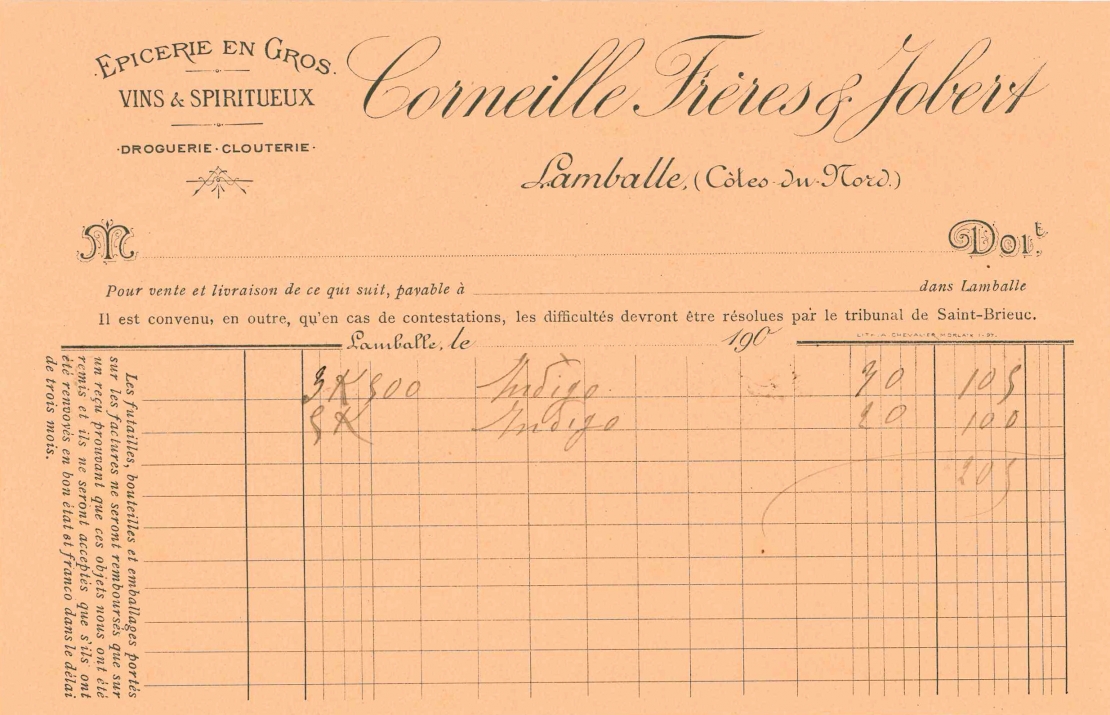 EPICERIE EN GROS.
VINS & SPIRITUEUX
DROGUERIE·CLOUTERIE
Corneille Frères & Jobert
Lamballe, (Côtes-du-Nord.)
M Doit
Pour vente et livraison de ce qui suit, payable à dans Lamballe
Il est convenu, en outre, qu'en cas de contestations, les difficultés devront être résolues par le tribunal de Saint-Brieuc.
LITH. A. CHEVALIER, MORLAIX
Lamballe, le 190
3 K 500 Indigo 30 105
5 K Indigo 20 100
205
Les futailles, bouteilles et emballages portés
sur les factures ne seront remboursés que sur
un reçu prouvant que ces objets nous ont été
remis et ils ne seront acceptés que s'ils ont
été renvoyés en bon état et franco dans le délai
de trois mois.